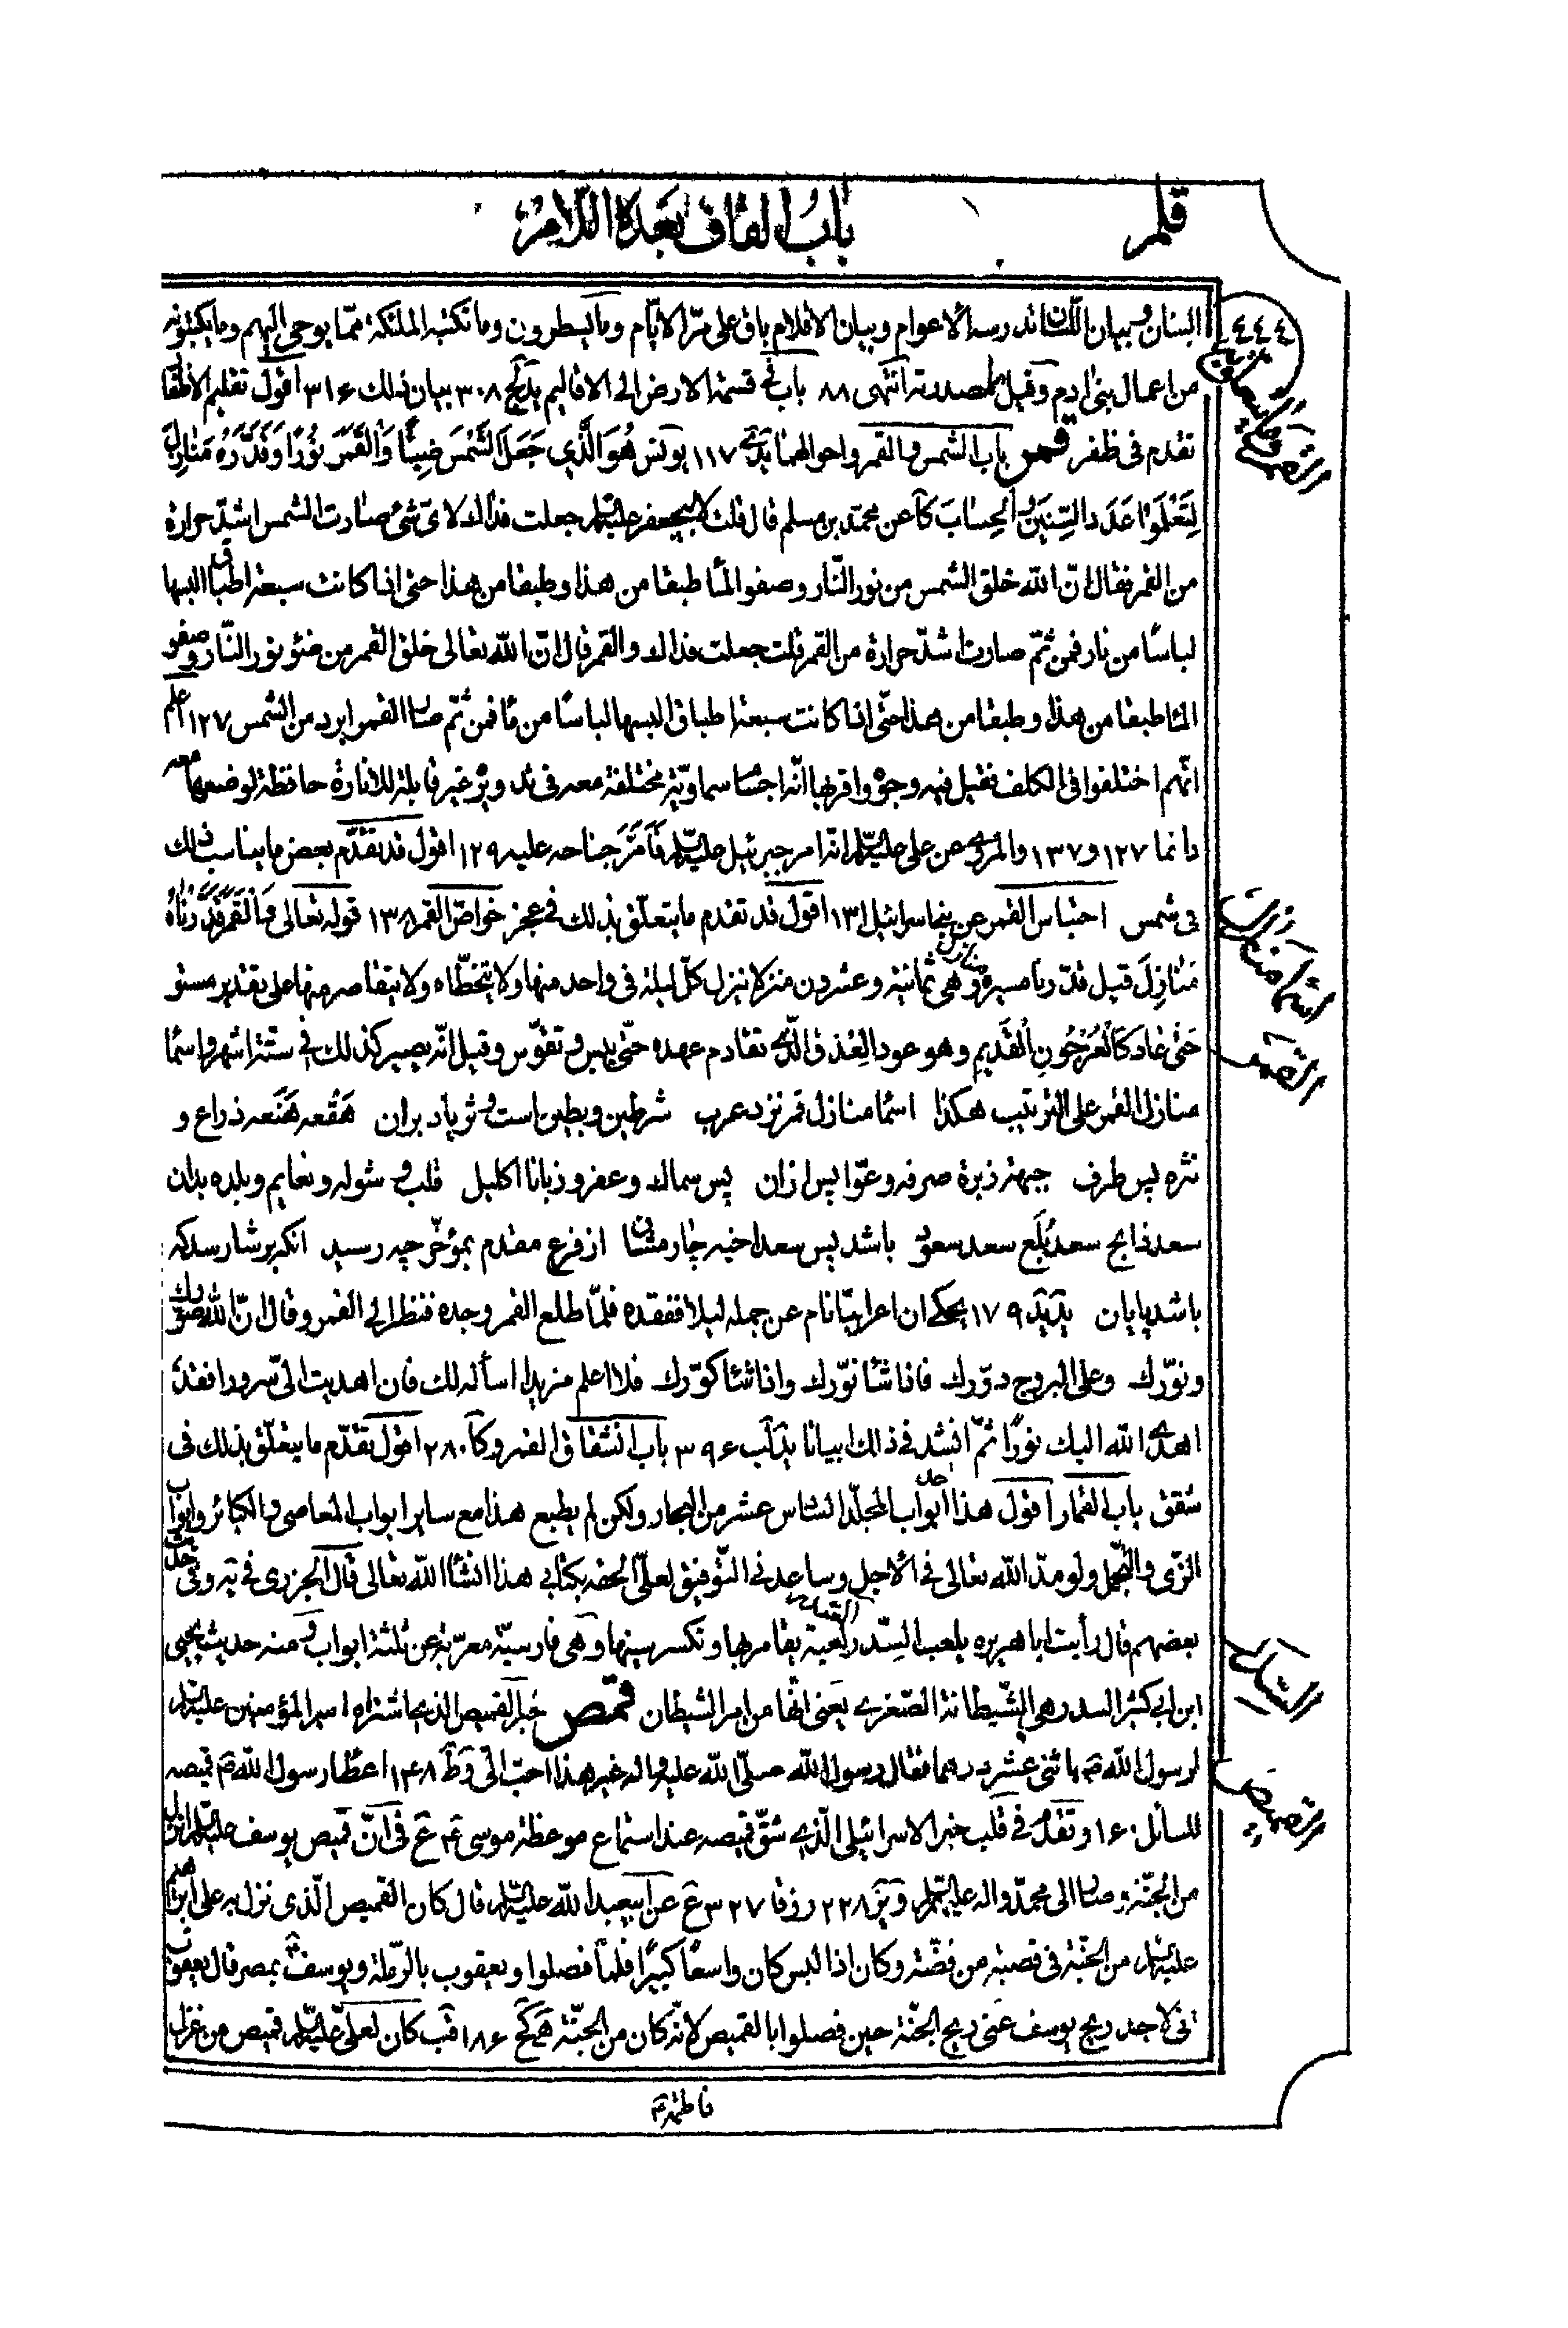 قلم
باب القاف بعده اللام
٤٤٤
البنان وبيان اللسان تدرسه الأعوام وبيان الاقلام باق على مرّ الايّام وما يسطرون وما تكتبه الملئكة ممّا يوحى اليهم وما يكتبونه
من اعمال بنى ادم وقيل ما مصدرية انتهى ٨٨ باب فى قسمة الارض الى الاقاليم يد لج ٣٠٨ بيان ذلك ٣١٤ اقول تقليم الاظفار
تقدم فى ظفر قمر باب الشمس والقمر واحوالهما يد ١١٧ يونس هُوَ الَّذِي جَعَلَ الشَّمْسَ ضِيٰاءً وَالْقَمَرَ نُورًا وَقَدَّرَهُ مَنٰازِلَ
لِتَعْلَمُوا عَدَدَ السِّنِينَ وَالْحِسٰابَ كا عن محمّد بن مسلم قال قلت لابيجعفر عليه السّلم جعلت فداك لاىّ شئ صارت الشمس اشدّ حرارة
من القمر فقال انّ الله خلق الشمس من نور النّار وصفو الماء طبقا من هذا وطبقا من هذا حتى اذا كانت سبعة اطباق البسها
لباسًا من نار فمن ثمّ صارت اشدّ حرارة من القمر قلت جعلت فداك والقمر قال انّ الله تعالى خلق القمر من ضوء نور النّار وصفو
الماء طبقا من هذا وطبقا من هذا حتّى اذا كانت سبعة اطباق البسها لباسًا من ماء فمن ثمّ صار القمر ابرد من الشمس ١٢٧ اعلم
انّهم اختلفوا فى الكلف فقيل فيه وجوه واقربها انّه اجسام سماويّة مختلفة معه فى تدويره غير قابلة للانارة حافظة لوضعها معه
دائما ١٢٧ و١٣٧ والمروى عن على عليه السّلم انه امر جبرئيل عليه السّلم فَأَمَرَّ جناحه عليه ١٢٩ اقول قد تقدّم بعض ما يناسب ذلك
فى شمس احتباس القمر عن بنى اسرائيل ١٣١ اقول قد تقدم ما يتعلّق بذلك فى عجز خواصّ القمر ١٣٨ قوله تعالى وَالْقَمَرَ قَدَّرْنٰاهُ
مَنٰازِلَ قيل قدّرنا مسيره منازل وهى ثمانية وعشرون منزلا ينزل كلّ ليلة فى واحد منها ولا يتخطّاه ولا يتقاصر منها على تقدير مستو
حَتّٰى عٰادَ كَالْعُرْجُونِ الْقَدِيمِ وهو عود العِذق الّذى تقادم عهده حتّى يبس وتقوّس وقيل انّه يصير كذلك فى ستّة اشهر واسماء
منازل القمر على الترتيب هكذا اسماء منازل قمر نزد عرب شرطين وبطين است وثريا دبران هَقْعه هَنْعه ذراع و
نثره پس طرف جبهة زبرة صرفه وعوّا پس ازان پس سماك وغفر و زبانا اكليل قلب و شوله و نعايم و بلده بدان
سعد ذابح سعد بُلَع سعد سعود باشد پس سعد اخبيه چارمشان از فرع مقدم بمؤخّر چه رسيد انكه برشا رسد كه
باشد پايان يد يد ١٧٩ يحكى ان اعرابيّا نام عن جمله ليلا ففقده فلمّا طلع القمر وجده فنظر الى القمر وقال انّ الله صوّرك
ونوّرك وعلى البروج دوّرك فاذا شاء نوّرك واذا شاء كوّرك فلا اعلم مزيدا اسأله لك فان اهديت الىّ سرورا فقد
اهدى الله اليك نورًا ثمّ انشد فى ذلك ابياتا يد لب ٣٩۶ باب انشقاق القمر و كا ٢٨٠ اقول تقدّم ما يتعلّق بذلك فى
شقق باب القمار اقول هذا احد ابواب المجلّد السادس عشر من البحار ولكن لم يطبع هذا مع ساير ابواب المعاصى والكبائر وابواب
الزّى والتجمل ولو مدّ الله تعالى فى الأجل وساعدنى التّوفيق لعلّى الحقه بكتابى هذا انشاء الله تعالى قال الجزرى فى يه وفى حديث
بعضهم قال رأيت ابا هريره يلعب السِّدّر لعبة يقامر بها وتكسر سينها وهى فارسيّة معرّبة عن ثلثة ابواب ومنه حديث يحيى
ابن ابى كثير السدر هى الشّيطانة الصّغرى يعنى انّها من امر الشيطان قمص خبر القميص الذى اشتراه امير المؤمنين عليه السّلم
لرسول الله ص باثنى عشر درهما فقال رسول الله صلّى الله عليه واله غير هذا احبّ الىّ و ط ١٤٨ اعطاء رسول الله ص قميصه
للسائل ١۶٠ وتقدّم فى قلب خبر الاسرائيلى الّذى شقّ قميصه عند استماع موعظة موسى ع فى انّ قميص يوسف عليه السّلم انزل
من الجنّة وصار الى محمّد واله عليهم السّلم ٢٢٨ ٣٢٧ ع عن ابيعبد الله عليه السّلم قال كان القميص الّذى نزل به على ابراهيم
عليه السّلم من الجنّة فى قصبة من فضّة وكان اذا لبس كان واسعًا كبيرًا فلمّا فصلوا ويعقوب بالرّملة ويوسف بمصر قال يعقوب
انى لاجد ريح يوسف عنى ريح الجنّة حين فصلوا بالقميص لانّه كان من الجنّة ١٨۶ قب كان لعلىّ عليه السّلم قميص من غزل
فاطمة ع
القمر
القميص